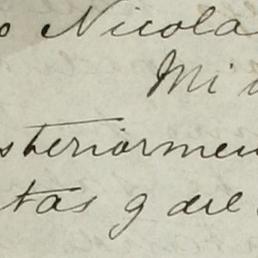 o Nicola
Mi
steriormen
tas q del